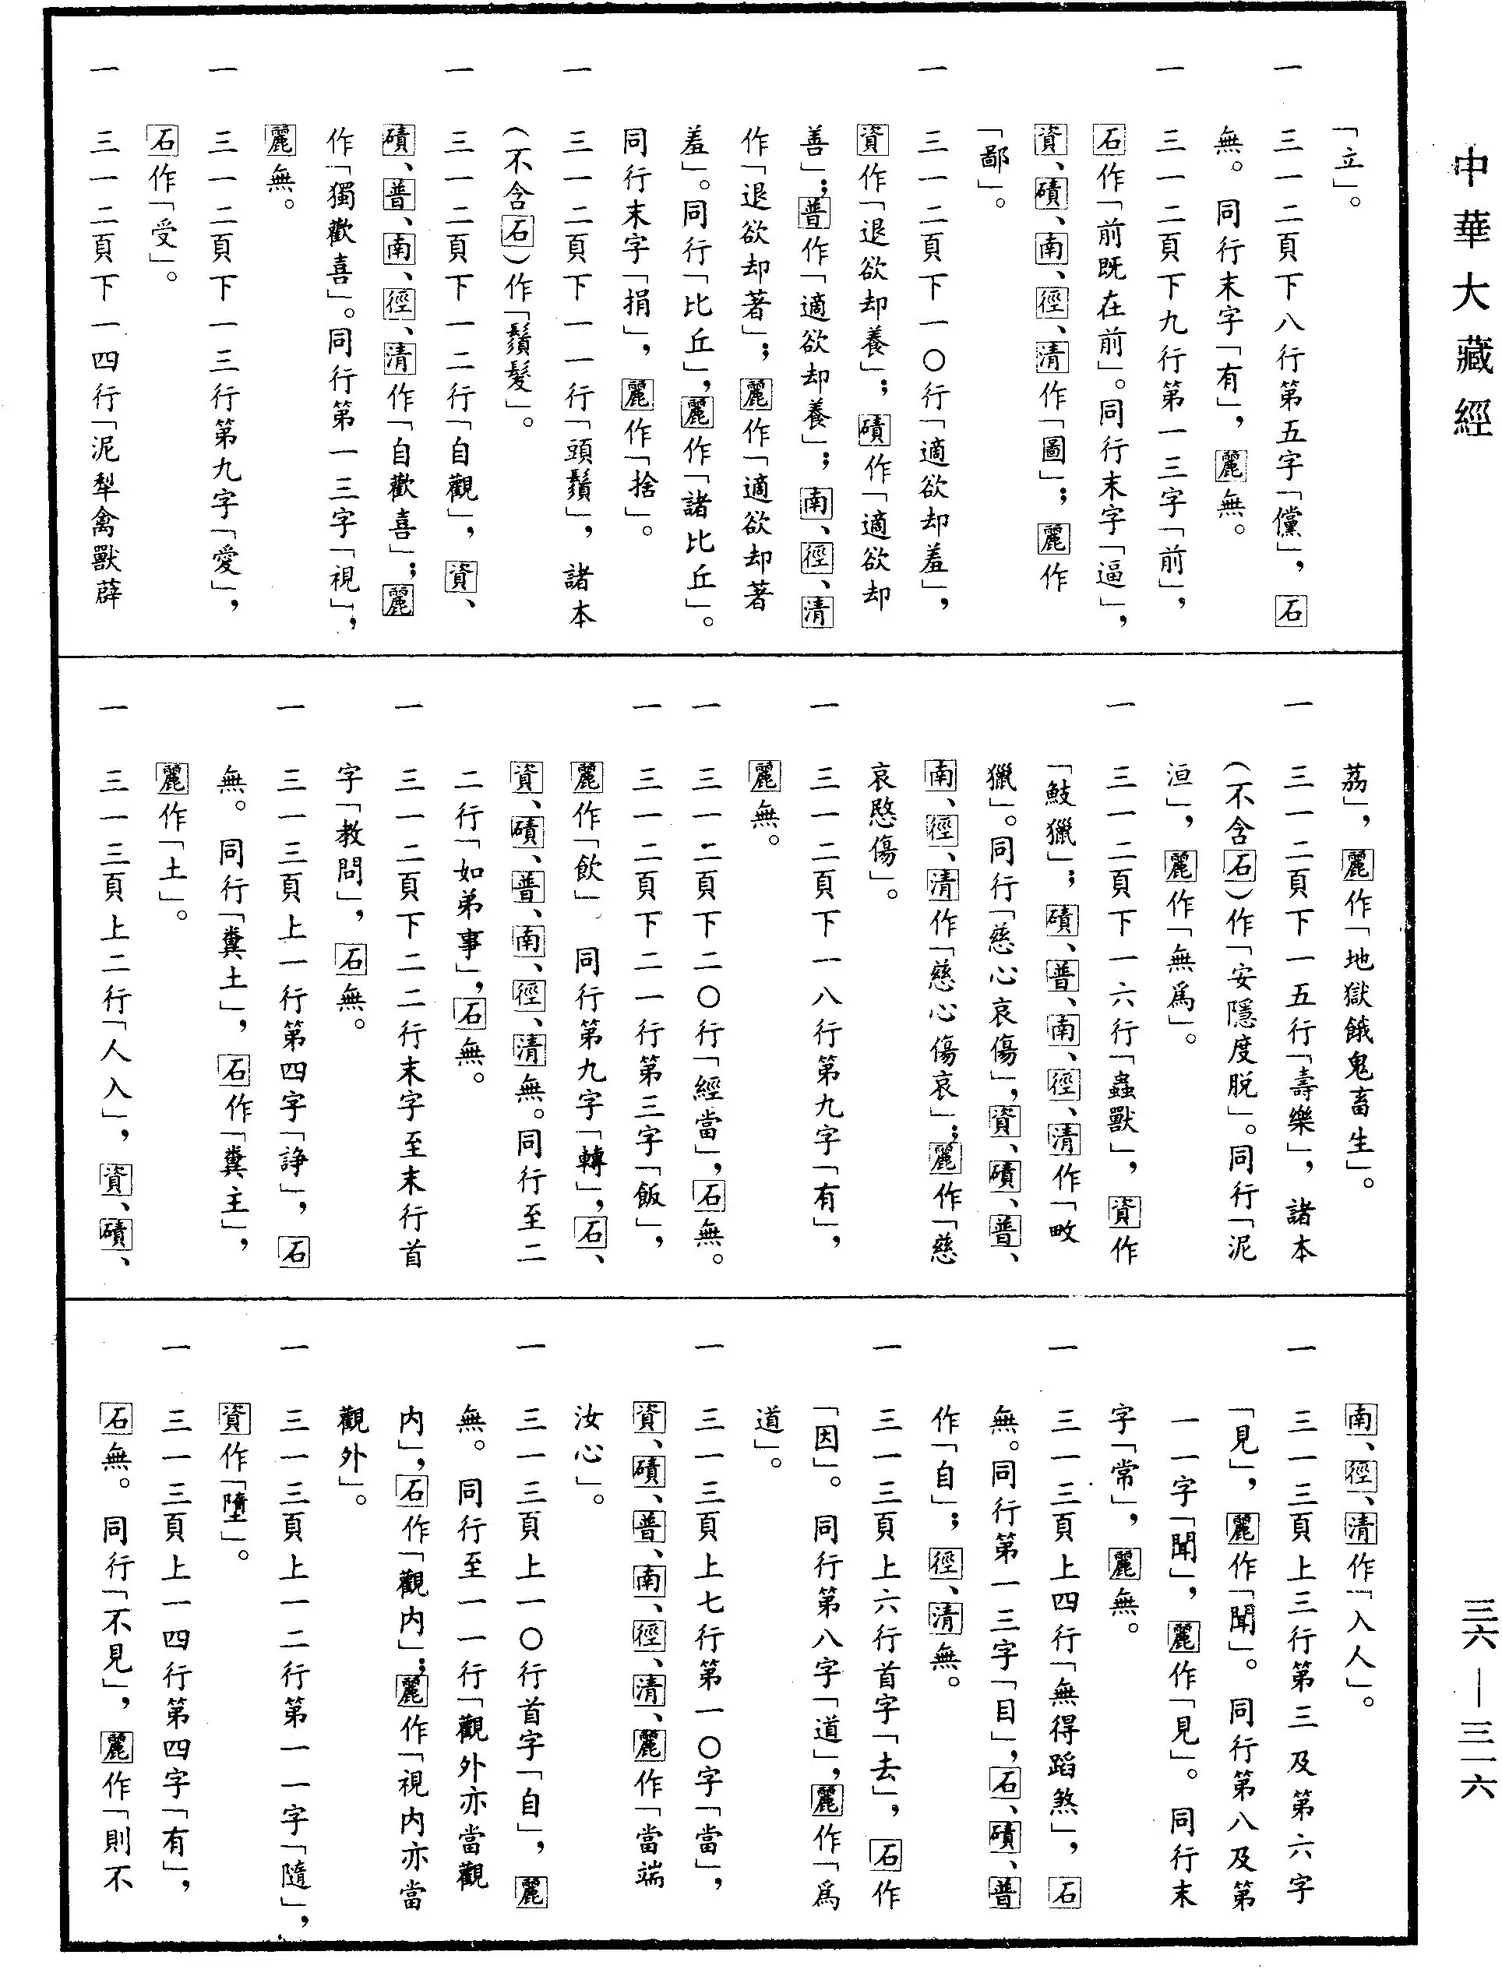 中華大藏經
「立」。
一 三一二頁下八行第五字「儻」，石
無。同行末字「有」，麗無。
一 三一二頁下九行第一三字「前」，
石作「前既在前」。同行末字「逼」，
資、磧、南、徑、清作「圖」；麗作
「鄙」。
一 三一二頁下一〇行「適欲却羞」，
資作「退欲却養」；磧作「適欲却
善」；普作「適欲却養」；南、徑、清
作「退欲却著」；麗作「適欲却著
羞」。同行「比丘」，麗作「諸比丘」。
同行末字「捐」，麗作「捨」。
一 三一二頁下一一行「頭鬚」，諸本
（不含石）作「鬚髮」。
一 三一二頁下一二行「自觀」，資、
磧、普、南、徑、清作「自歡喜」；麗
作「獨歡喜」。同行第一三字「視」，
麗無。
一 三一二頁下一三行第九字「愛」，
石作「受」。
一 三一二頁下一四行「泥犁禽獸薜
荔」，麗作「地獄餓鬼畜生」。
一 三一二頁下一五行「壽樂」，諸本
（不含石）作「安隱度脱」。同行「泥
洹」，麗作「無爲」。
一 三一二頁下一六行「蟲獸」，資作
「䶓獵」；磧、普、南、徑、清作「畋
獵」。同行「慈心哀傷」，資、磧、普、
南、徑、清作「慈心傷哀」；麗作「慈
哀愍傷」。
一 三一二頁下一八行第九字「有」，
麗無。
一 三一二頁下二〇行「經當」，石無。
一 三一二頁下二一行第三字「飯」，
麗作「飲」 同行第九字「轉」，石、
資、磧、普、南、徑、清無。同行至二
二行「如弟事」，石無。
一 三一二頁下二二行末字至末行首
字「教問」，石無。
一 三一三頁上一行第四字「諍」，石
無。同行「糞土」，石作「糞主」，
麗作「土」。
一 三一三頁上二行「人入」，資、磧、
南、徑、清作「入人」。
一 三一三頁上三行第三及第六字
「見」，麗作「聞」。同行第八及第
一一字「聞」，麗作「見」。同行末
字「常」，麗無。
一 三一三頁上四行「無得蹈煞」，石
無。同行第一三字「目」，石、磧、普
作「自」；徑、清無。
一 三一三頁上六行首字「去」，石作
「因」。同行第八字「道」，麗作「爲
道」。
一 三一三頁上七行第一〇字「當」，
資、磧、普、南、徑、清、麗作「當端
汝心」。
一 三一三頁上一〇行首字「自」，麗
無。同行至一一行「觀外亦當觀
内」，石作「觀内」；麗作「視内亦當
觀外」。
一 三一三頁上一二行第一一字「隨」，
資作「墮」。
一 三一三頁上一四行第四字「有」，
石無。同行「不見」，麗作「則不
三六—三一六